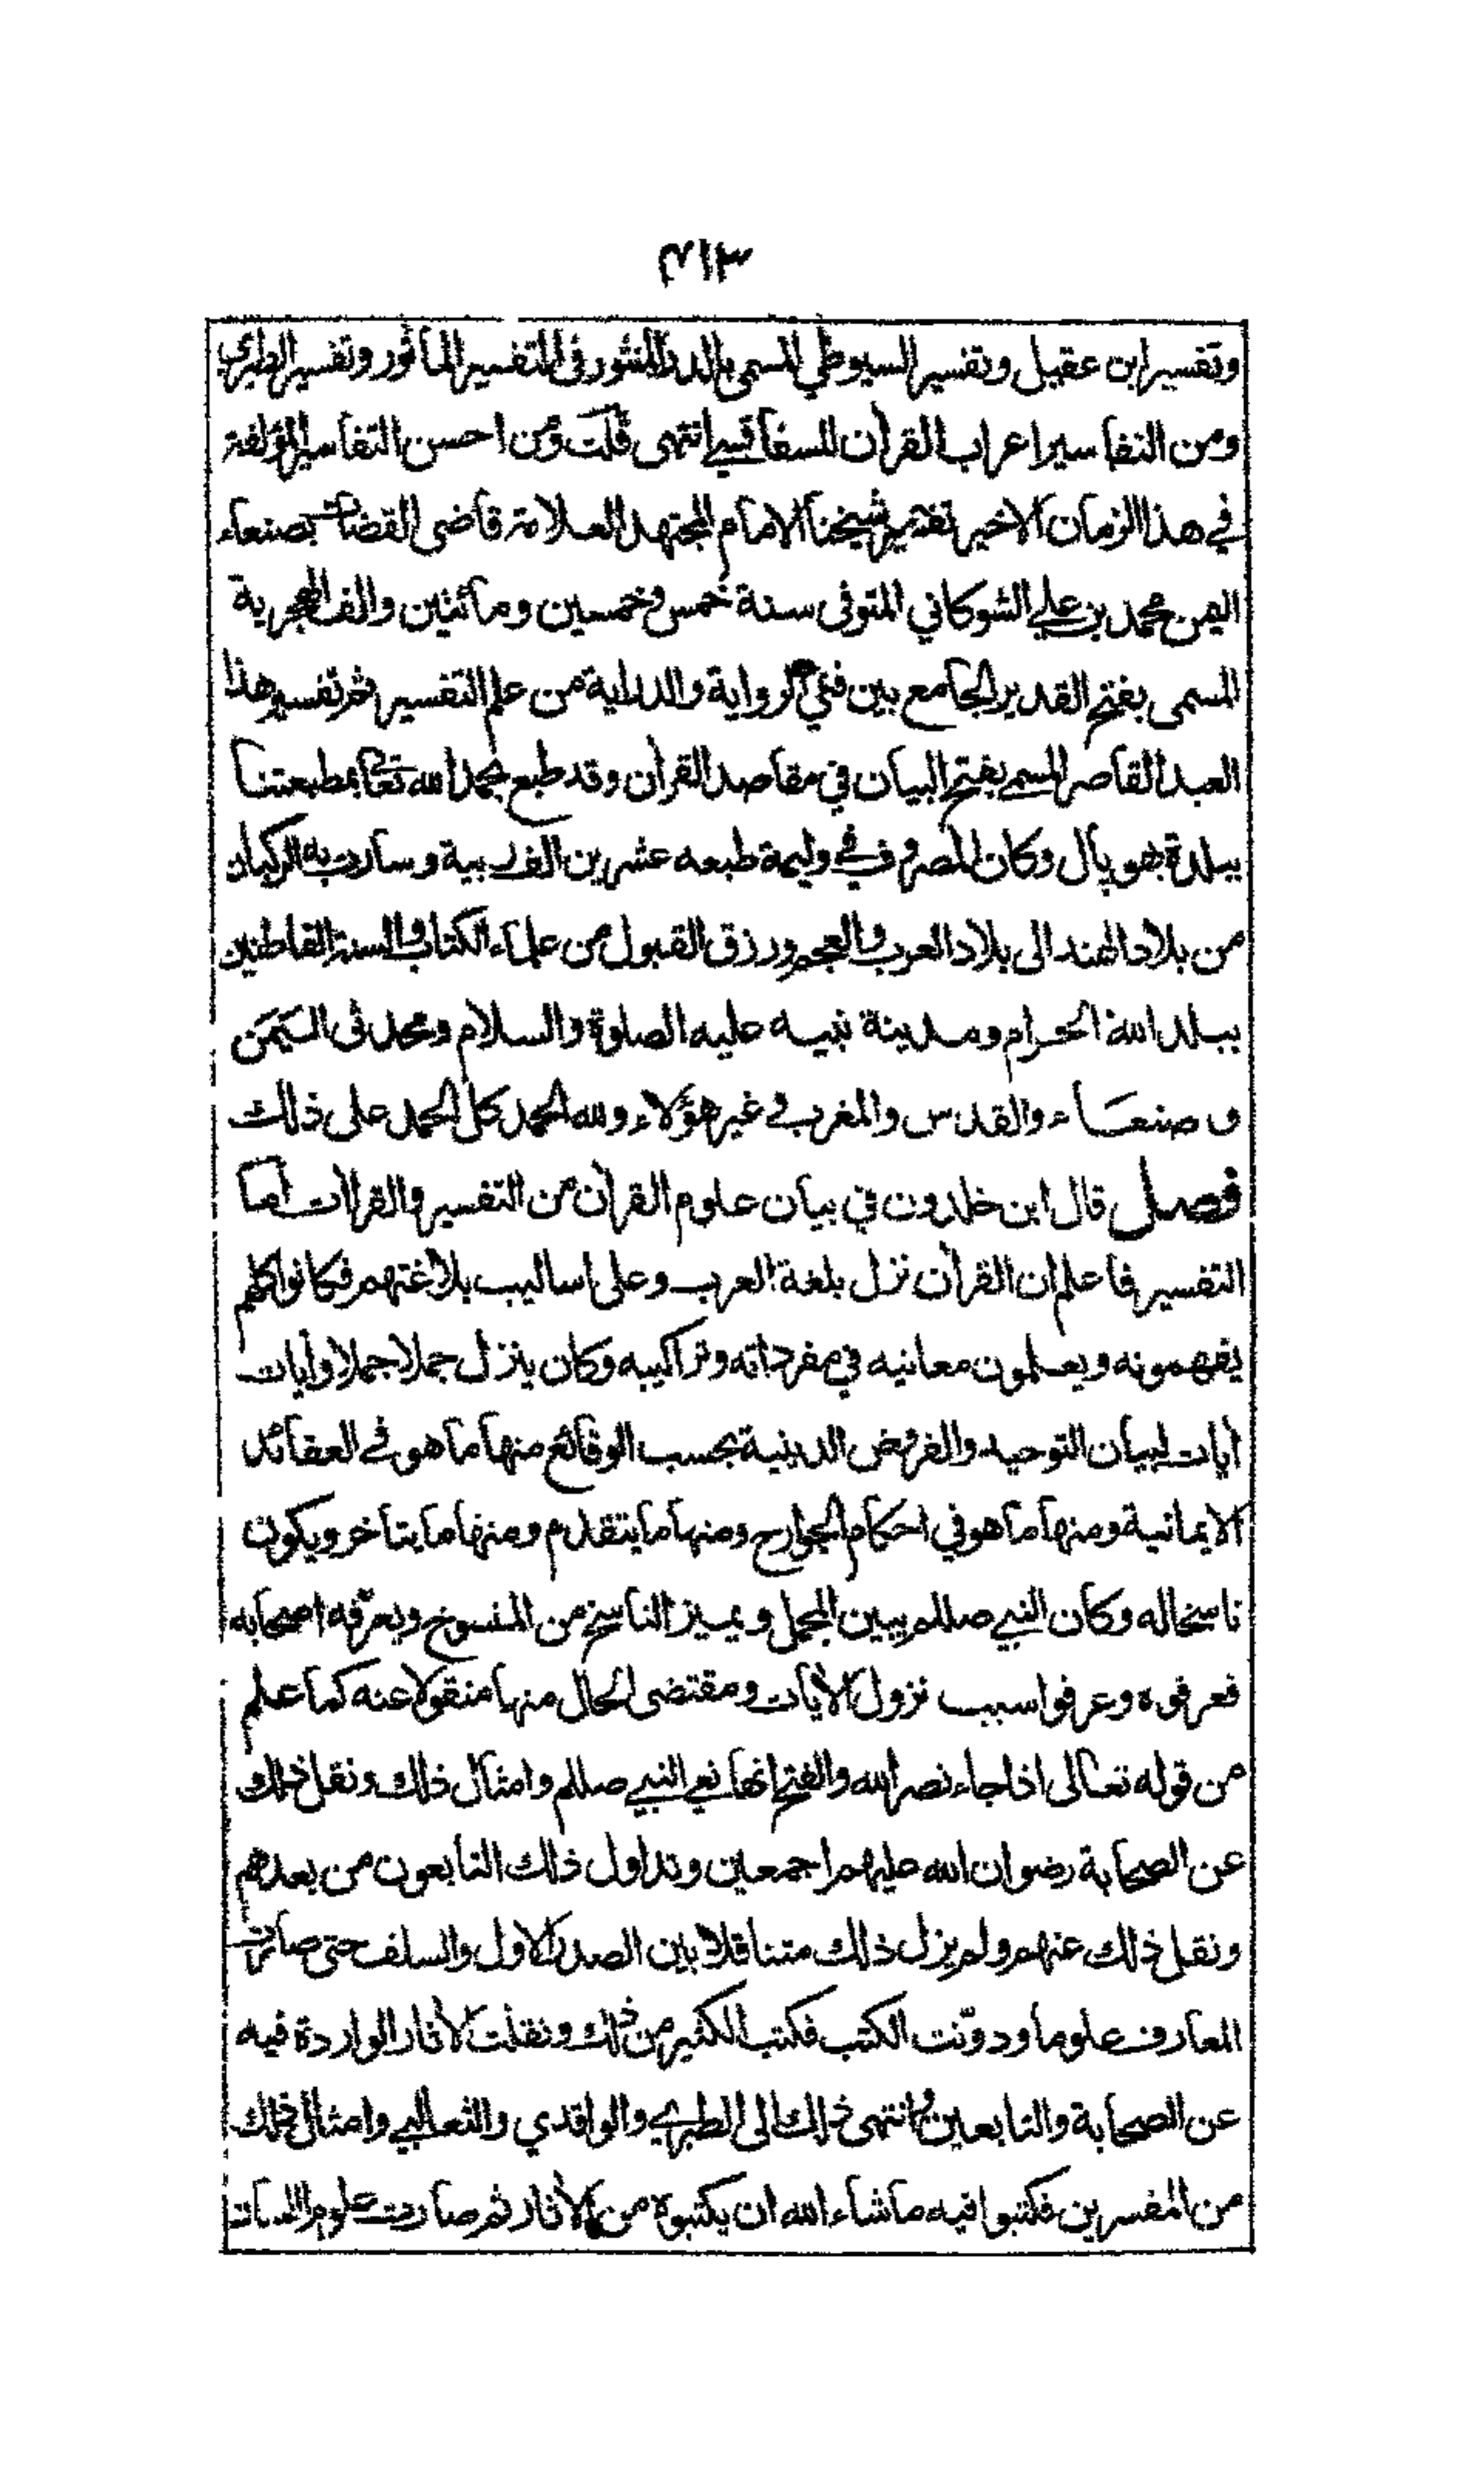 ٣١٣
وتفسير ابن عقيل وتفسير السيوطي المسمى بالدر المنثور فى التفسير المأثور وتفسير الطبري
ومن التفاسير اعراب القرآن للسفاقسي انتهى قلت ومن احسن التفاسير المؤلفة
في هذا الزمان الاخير تفسير شيخنا الامام المجتهد العلامة قاضى القضات بصنعاء
اليمن محمد بن علي الشوكاني المتوفى سنة خمس وخمسين ومائتين والف الهجرية
المسمى بفتح القدير الجامع بين فني الرواية والدراية من علم التفسير ثم تفسير هذا
العبد القاصر المسمى بفتح البيان في مقاصد القرآن وقد طبع بحمد الله تعالى بمطبعتنا
ببلدة بهوپال وكان المصروف في وليمة طبعه عشرين الف ربية وسارت به الركبان
من بلاد الهند الى بلاد العرب والعجم ورزق القبول من علماء الكتاب والسنة القاطنين
ببلد الله الحرام ومدينة نبيه عليه الصلوة والسلام ومحدثى اليمن
و صنعاء والقدس والمغرب و غير هؤلاء ولله الحمد كل الحمد على ذلك
فصل قال ابن خلدون في بيان علوم القرآن من التفسير والقراآت اما
التفسير فاعلم ان القرآن نزل بلغة العرب وعلى اساليب بلاغتهم فكانوا كلهم
يفهمونه ويعلمون معانيه في مفرداته وتراكيبه وكان ينزل جملا جملا وآيات
آيات لبيان التوحيد والفروض الدينية بحسب الوقائع منها ما هو في العقائد
الايمانية ومنها ما هو في احكام الجوارح ومنها ما يتقدم ومنها ما يتاخر ويكون
ناسخا له وكان النبي صللم يبين المجمل ويميز الناسخ من المنسوخ ويعرّفه اصحابه
فعرفوه وعرفوا سبب نزول الآيات ومقتضى الحال منها منقولا عنه كما علم
من قوله تعالى اذا جاء نصر الله والفتح انها نعي النبي صللم وامثال ذلك ونقل ذلك
عن الصحابة رضوان الله عليهم اجمعين وتداول ذلك التابعون من بعدهم
ونقل ذلك عنهم ولم يزل ذلك متناقلا بين الصدر الاول والسلف حتى صارت
المعارف علوما ودوّنت الكتب فكتب الكثير من ذلك ونقلت الآثار الواردة فيه
عن الصحابة والتابعين وانتهى ذلك الى الطبري والواقدي والثعالبي وامثال ذلك
من المفسرين فكتبوا فيه ما شاء الله ان يكتبوه من الآثار ثم صارت علوم اللسان